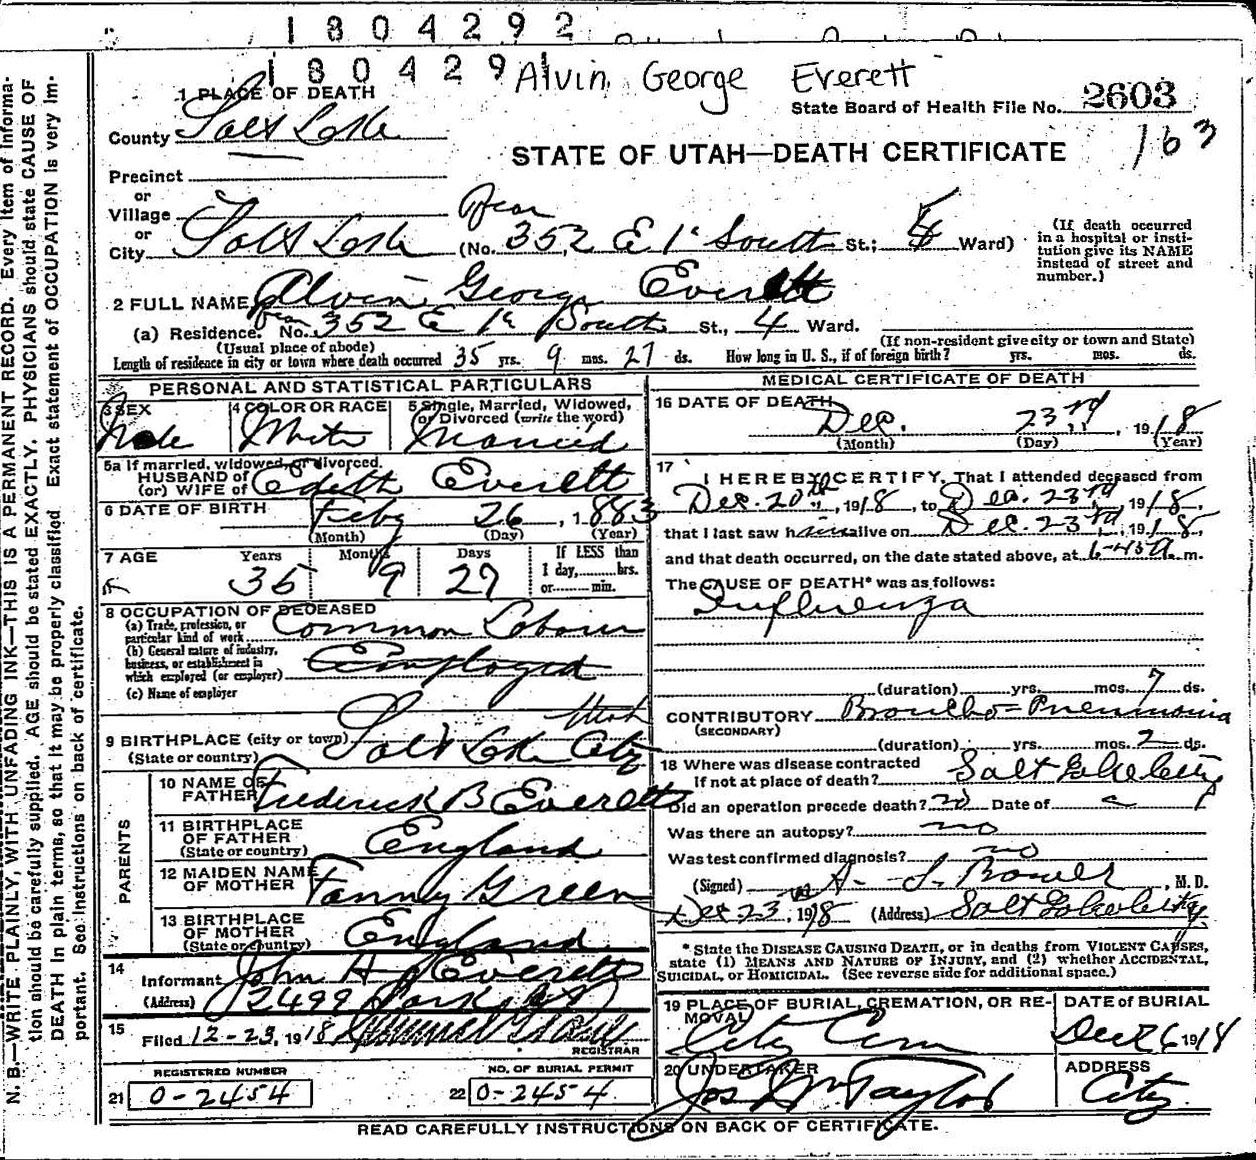 1804292
180429
Alvin George Everett
State Board of Health File No. 2603
163
1 PLACE OF DEATH
County Salt Lake
STATE OF UTAH—DEATH CERTIFICATE
Precinct
or
Village
or
City Salt Lake (No. Rear 352 E 1st South St.; 4 Ward)
(If death occurred in a hospital or insti-
tution give its NAME
instead of street and
number.)
2 FULL NAME Alvin George Everett
(a) Residence. No. Rear 352 E 1st South St., 4 Ward.
(Usual place of abode) (If non-resident give city or town and State)
Length of residence in city or town where death occurred 35 yrs. 9 mos. 27 ds. How long in U. S., if of foreign birth? yrs. mos. ds.
PERSONAL AND STATISTICAL PARTICULARS
3 SEX 4 COLOR OR RACE 5 Single, Married, Widowed,
or Divorced (write the word)
Male White Married
5a If married, widowed, or divorced.
HUSBAND OF
(or) WIFE of Edith Everett
6 DATE OF BIRTH Feby 26, 1883
(Month) (Day) (Year)
7 AGE Years Months Days If LESS than
1 day,.....hrs.
or.....min.
35 9 27
8 OCCUPATION OF DECEASED
(a) Trade, profession, or
particular kind of work Common Laborer
(b) General nature of industry,
business, or establishment in
which employed (or employer) Employed
(c) Name of employer
9 BIRTHPLACE (city or town) Salt Lake City Utah
(State or country)
PARENTS
10 NAME OF
FATHER Frederick B Everett
11 BIRTHPLACE
OF FATHER England
(State or country)
12 MAIDEN NAME
OF MOTHER Fanny Green
13 BIRTHPLACE
OF MOTHER England
(State or Country)
14 Informant John H Everett
(Address) 2499 Park
15 Filed 12-23, 1918
REGISTRAR
REGISTERED NUMBER NO. OF BURIAL PERMIT
21 0-2454 22 0-2454
MEDICAL CERTIFICATE OF DEATH
16 DATE OF DEATH Dec. 23rd, 1918
(Month) (Day) (Year)
17 I HEREBY CERTIFY, That I attended deceased from
Dec. 20th, 1918, to Dec. 23rd 1918,
that I last saw him alive on Dec. 23rd, 1918,
and that death occurred, on the date stated above, at 6-45a m.
The CAUSE OF DEATH* was as follows:
Influenza
(duration) yrs. mos. 7 ds.
CONTRIBUTORY Broncho=Pneumonia
(SECONDARY)
(duration) yrs. mos. 2 ds.
18 Where was disease contracted
If not at place of death? Salt Lake City
Did an operation precede death? no Date of
Was there an autopsy? no
Was test confirmed diagnosis? no
(Signed) A. S. Bower, M. D.
Dec 23, 1918 (Address) Salt Lake City
* State the DISEASE CAUSING DEATH, or in deaths from VIOLENT CAUSES,
state (1) MEANS AND NATURE OF INJURY, and (2) whether ACCIDENTAL,
SUICIDAL, or HOMICIDAL. (See reverse side for additional space.)
19 PLACE OF BURIAL, CREMATION, OR RE-
MOVAL City Cem
DATE of BURIAL
Dec 26 1918
20 UNDERTAKER Jos Wm Taylor
ADDRESS City
READ CAREFULLY INSTRUCTIONS ON BACK OF CERTIFICATE.
N. B.—WRITE PLAINLY, WITH UNFADING INK—THIS IS A PERMANENT RECORD. Every item of Informa-
tion should be carefully supplied. AGE should be stated EXACTLY. PHYSICIANS should state CAUSE OF
DEATH in plain terms, so that it may be properly classified. Exact statement of OCCUPATION is very Im-
portant. See Instructions on back of certificate.